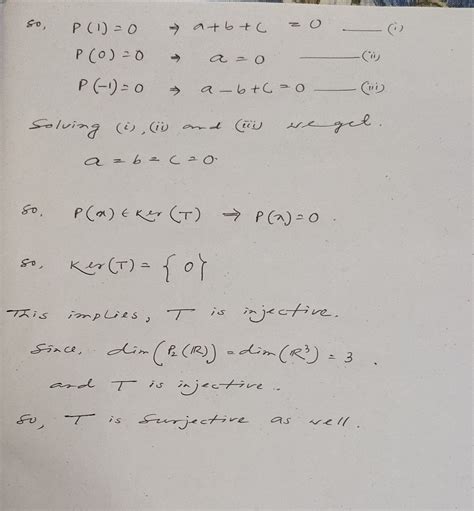 so, P(1)=0 → a+b+c = 0 —— (i)
P(0)=0 → a = 0 —— (ii)
P(-1)=0 → a-b+c=0 —— (iii)
Solving (i), (ii) and (iii) we get.
a = b = c = 0.
so. P(x) ∈ Ker(T) ⇒ P(x)=0.
so, Ker(T) = { 0 }
This implies, T is injective.
Since, dim(P₂(ℝ)) = dim(ℝ³) = 3.
and T is injective.
so, T is surjective as well.